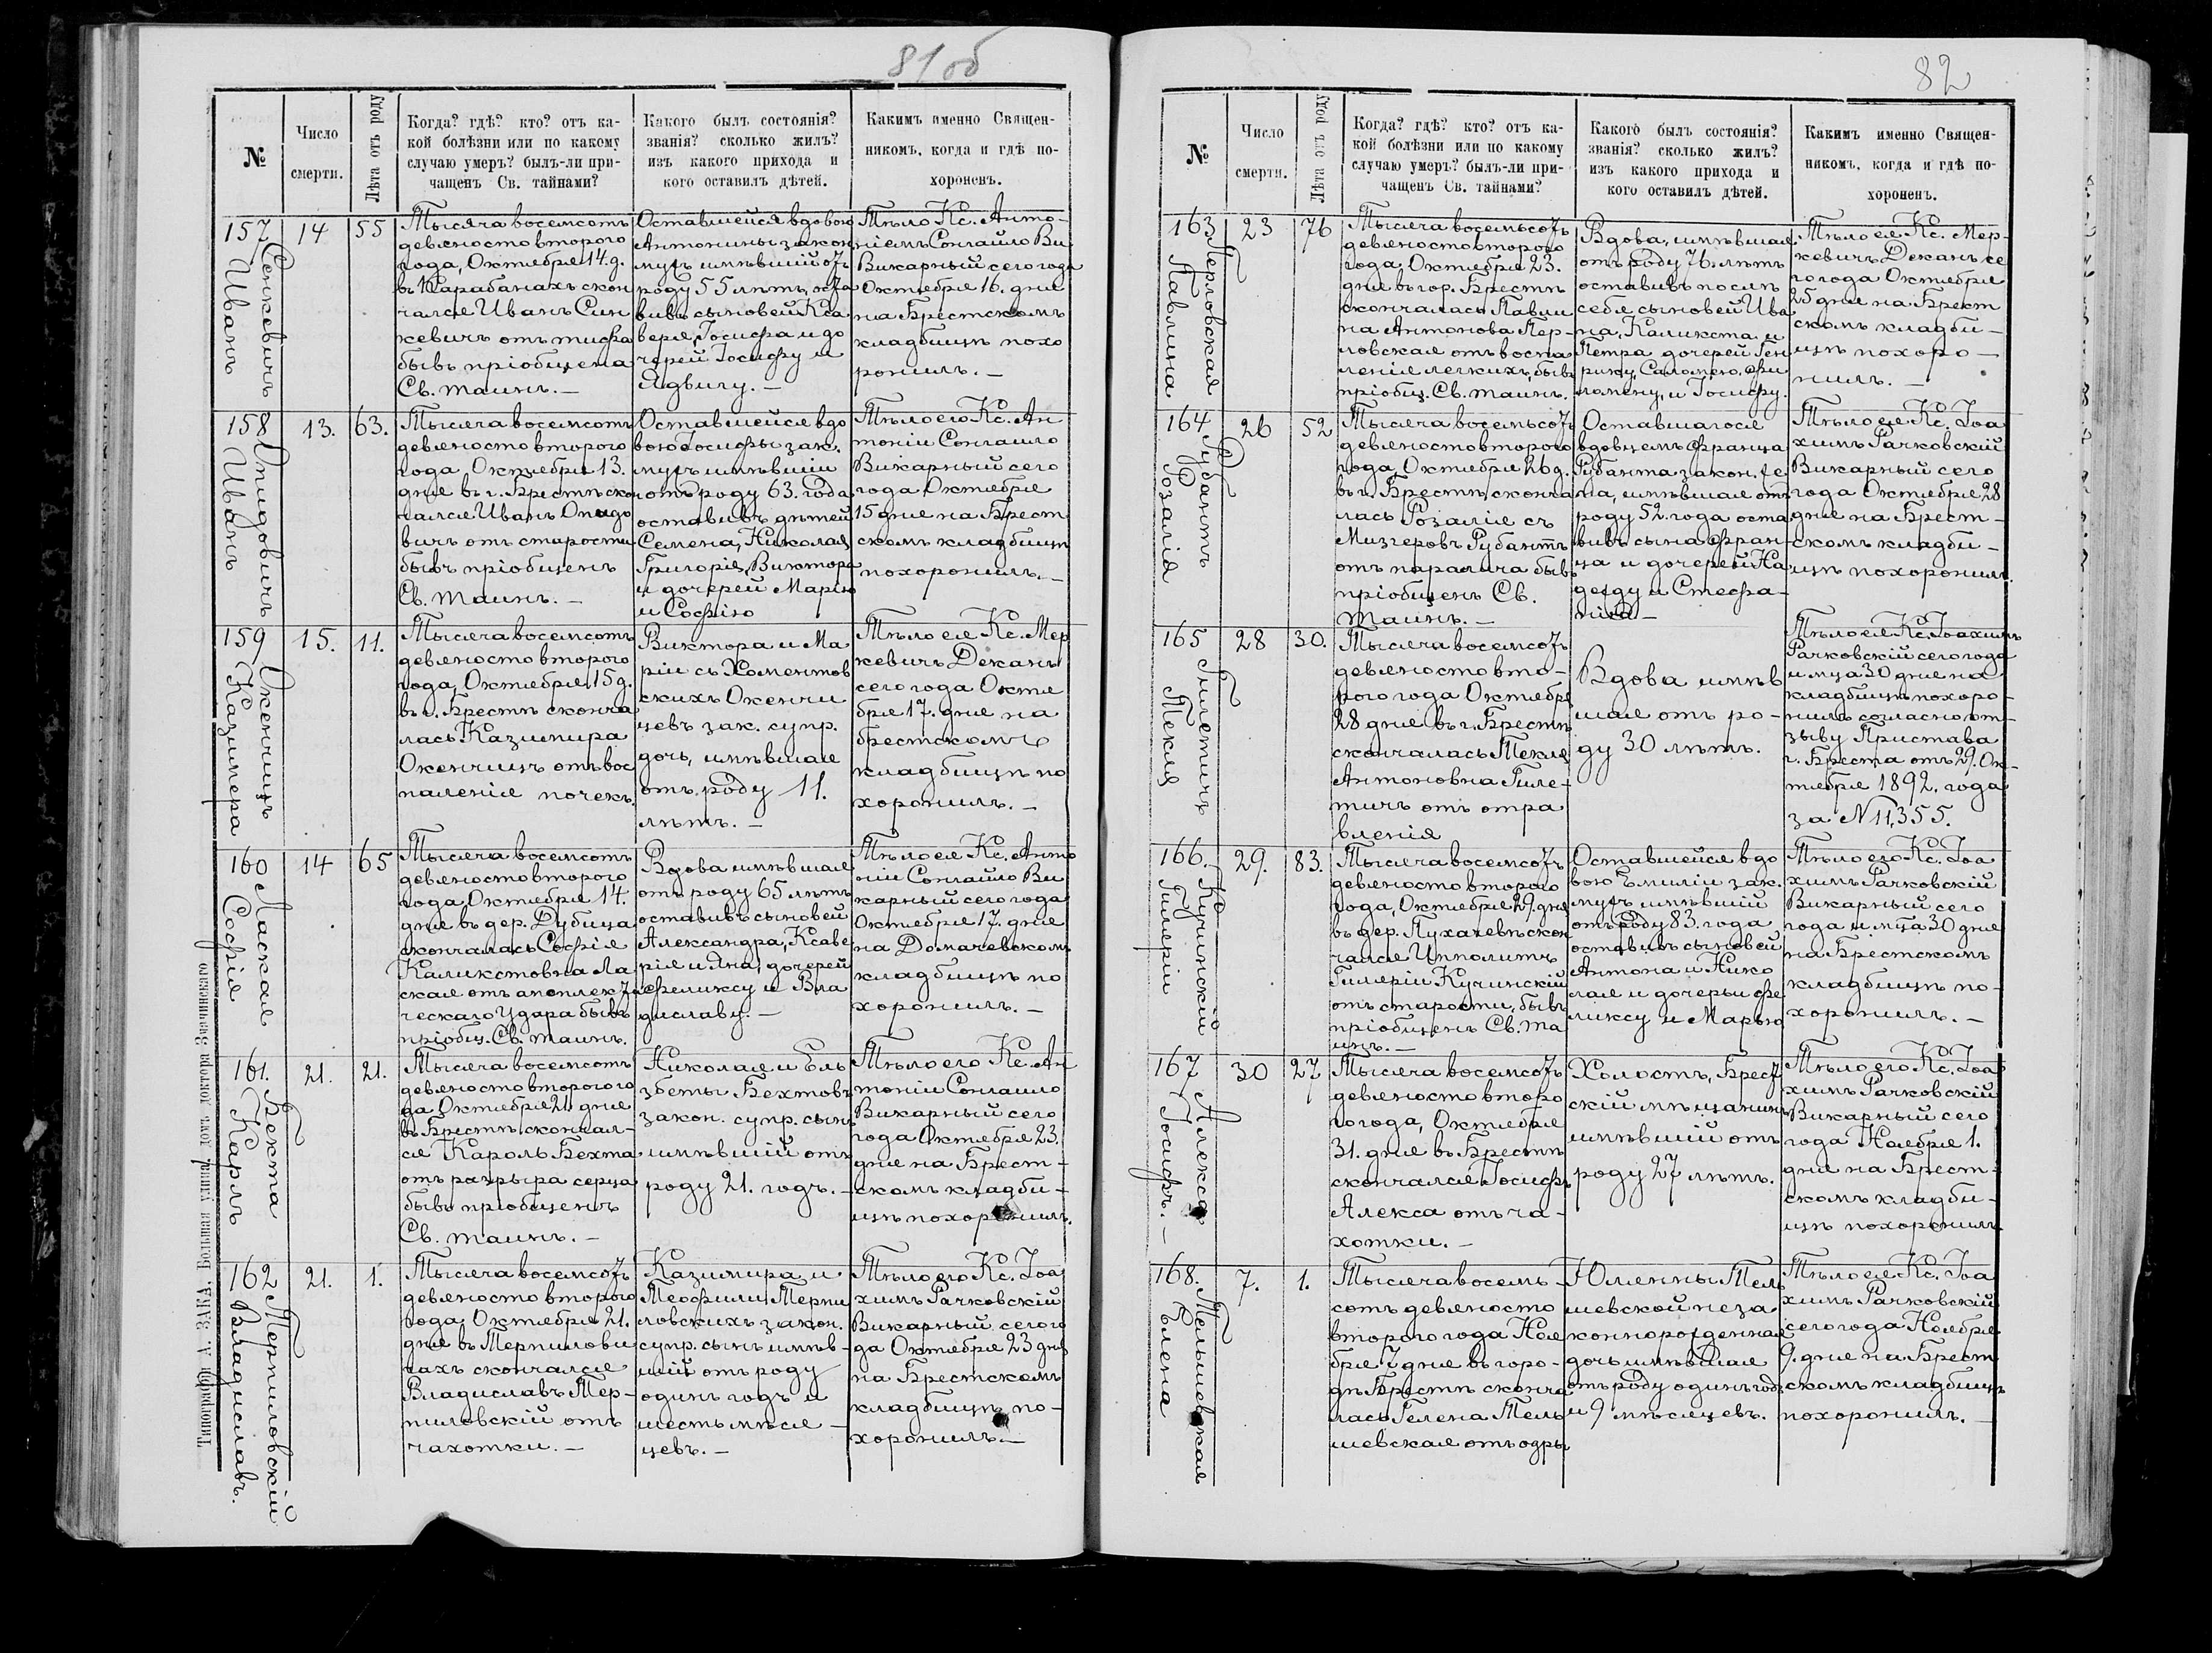 81об
№
Число
смерти.
Лѣта отъ роду
Когда? гдѣ? кто? отъ ка-
кой болѣзни или по какому
случаю умеръ? былъ-ли при-
чащенъ Св. тайнами?
Какого былъ состоянія?
званія? сколько жилъ?
изъ какого прихода и
кого оставилъ дѣтей.
Какимъ именно Священ-
никомъ, когда и гдѣ по-
хороненъ.
157
Сонкевичъ
Иванъ
14
55
Тысяча восемсотъ
девяносто второго
года, Октября 14. д.
въ Карабанахъ скон
чался Иванъ Син
кевичъ отъ тифа
бывъ пріобщена
Св. таинъ. —
Оставшейся вдовою
Антонины закон
мужъ имѣвшій отъ
роду 55 лѣтъ, оста
вивъ сыновей Кса
верія, Іосифа и до
черей Іосифу и
Ядвигу. —
Тѣло Кс. Анто-
ніемъ Сонгайло Ви
Викарный сего года
Октября 16. дня
на Брестскомъ
кладбищѣ похо
ронилъ. —
158
Опидовичъ
Иванъ
13.
63.
Тысяча восемсотъ
девяносто второго
года, Октября 13.
дня въ г. Брестѣ скон
чался Иванъ Опидо
вичъ отъ старости
бывъ пріобщенъ
Св. таинъ. —
Оставшейся вдо
вою Іосифы зак.
мужъ имѣвшій
отъ роду 63. года
оставивъ дѣтей
Семена, Николая
Григорія, Виктора
и дочерей Марію
и Софію
Тѣло его Кс. Ан
тоній Сонгайло
Викарный сего
года Октября
15 дня на Брест
скомъ кладбищѣ
похоронилъ. —
159
Окенчицъ
Казимера
15.
11.
Тысяча восемсотъ
девяносто второго
года, Октября 15 д.
въ г. Брестѣ сконча
лась Казимира
Окенчицъ отъ вос
паленія почекъ.
Виктора и Ма
ріи съ Хоментов
скихъ Окенчи
цевъ зак. супр.
дочь, имѣвшая
отъ роду 11.
лѣтъ. —
Тѣло ея Кс. Мер
кевичъ Деканъ
сего года Октя
бря 17. дня на
брестскомъ
кладбищѣ по
хоронилъ. —
160
Лаская
Софія
14
65
Тысяча восемсотъ
девяносто второго
года, Октября 14.
дня въ дер. Дубица
скончалась Софія
Каликстовна Ла
ская отъ апоплекти
ческаго удара бывъ
пріобщ. Св. таинъ.
Вдова имѣвшая
отъ роду 65 лѣтъ
оставивъ сыновей
Александра, Ксаве
рія и Яна, дочерей
Феликсу и Вла
диславу. —
Тѣло ея Кс. Анто
ній Сонгайло Ви
карный сего года
Октября 17. дня
на Домачевскомъ
кладбищѣ по
хоронилъ. —
161.
Бехта
Карлъ
21.
21.
Тысяча восемсотъ
девяносто второго го
да Октября 21 дня
въ Брестѣ скончал-
ся Кароль Бехта
отъ разрыва серца
бывъ пріобщенъ
Св. таинъ. —
Николая и Ель
збеты Бехтовъ
закон. супр. сынъ
имѣвшій отъ
роду 21. годъ. —
Тѣло его Кс. Ан
тоній Сонгайло
Викарный сего
года Октября 23.
дня на Брест-
скомъ кладби-
щѣ похоронилъ.
162
Терпиловскій
Владиславъ.
21.
1.
Тысяча восемсотъ
девяносто второго
года, Октября 21.
дня въ Терпилови
чахъ скончался
Владиславъ Тер-
пиловскій отъ
чахотки. —
Казимира и
Теофили Терпи
ловскихъ закон.
супр. сынъ имѣв-
шій отъ роду
одинъ годъ и
шесть мѣся-
цевъ. —
Тѣло его Кс. Іоа
химъ Рачковскій
Викарный сего го
да Октября 23 дня
на Брестскомъ
кладбищѣ по-
хоронилъ. —
Типографія А. ЗАКА, Большая улица, домъ доктора Значинскаго
82
№
Число
смерти.
Лѣта отъ роду
Когда? гдѣ? кто? отъ ка-
кой болѣзни или по какому
случаю умеръ? былъ-ли при-
чащенъ Св. тайнами?
Какого былъ состоянія?
званія? сколько жилъ?
изъ какого прихода и
кого оставилъ дѣтей.
Какимъ именно Священ-
никомъ, когда и гдѣ по-
хороненъ.
163
Перловская
Павлина
23
76
Тысяча восемьсотъ
девяносто второго
года, Октября 23.
дня въ гор. Брестѣ
скончалась Павли
на Антонова Пер-
ловская отъ воспа
ленія легкихъ, бывъ
пріобщ. Св. таинъ.
Вдова, имѣвшая
отъ роду 76 лѣтъ
оставивъ послѣ
себя сыновей Ива
на, Каликста и
Петра дочерей Ген
рику, Саломею, Фи
ломену, и Іосифу.
Тѣло ея Кс. Мер-
кевичъ Деканъ се
го года Октября
25 дня на Брест
скомъ кладби-
щѣ похоро-
нилъ. —
164
Рубантъ
Розалія
26
52
Тысяча восемьсотъ
девяносто второго
года, Октября 26 д.
въ г. Брестѣ сконча
лась Розалія съ
Мизгеровъ Рубантъ
отъ паралича бывъ
пріобщенъ Св.
таинъ. —
Оставшагося
вдовцемъ Франца
Рубанта закон. же
на, имѣвшая отъ
роду 52. года оста
вивъ сына Фран-
ца и дочерей На
дежду и Стефа-
нію —
Тѣло ея Кс. Іоа
химъ Рачковскій
Викарный сего
года Октября 28
дня на Брест-
скомъ кладби-
щѣ похоронилъ.
165
Гилетичъ
Текля
28
30.
Тысяча восемсотъ
девяносто вто-
рого года Октября
28 дня въ г. Брестѣ
скончалась Текля
Антоновна Гиле-
тичъ отъ отра
вленія
Вдова имѣв
шая отъ ро-
ду 30 лѣтъ.
Тѣло ея Кс. Іоахимъ
Рачковскій сего года
и мца 30 дня на
кладбищѣ похоро-
нилъ согласно от-
зыву Пристава
г. Бреста отъ 29. Ок-
тября 1892. года
за N 11,355.
166.
Кучинскій
Гилерій
29.
83.
Тысяча восемсотъ
девяносто второго
года, Октября 29. дня
въ дер. Пухачевѣ скон
чался Ипполитъ
Гилерій Кучинскій
отъ старости, бывъ
пріобщенъ Св. та
инъ. —
Оставшейся вдо
вою Эмиліи зак.
мужъ имѣвшій
отъ роду 83. года
оставивъ сыновей
Антона и Нико
лая и дочерьи Фе
ликсу и Марью
Тѣло его Кс. Іоа
химъ Рачковскій
Викарный сего
года и мца 30 дня
на Брестскомъ
кладбищѣ по-
хоронилъ. —
167
Алекса
Іосифъ. —
30
27
Тысяча восемсотъ
девяносто второ
го года, Октября
31. дня въ Брестѣ
скончался Іосифъ
Алекса отъ ча-
хотки. —
Холостъ, Брест
скій мѣщанинъ
имѣвшій отъ
роду 27 лѣтъ.
Тѣло его Кс. Іоа
химъ Рачковскій
Викарный сего
года Ноября 1.
дня на Брест-
скомъ кладби-
щѣ похоронилъ
168.
Тельшевская
Елена
7.
1.
Тысяча восемь-
сотъ девяносто
второго года Ноя
бря 7 дня въ горо-
дѣ Брестѣ сконча
лась Гелена Тель
шевская отъ одры
Юлианны Тель
шевской неза
коннорожденная
дочь имѣвшая
отъ роду одинъ годъ
и 9 мѣсяцевъ.
Тѣло ея Кс. Іоа
химъ Рачковскій
сего года Ноября
9. дня на Брест
скомъ кладбищѣ
похоронилъ. —